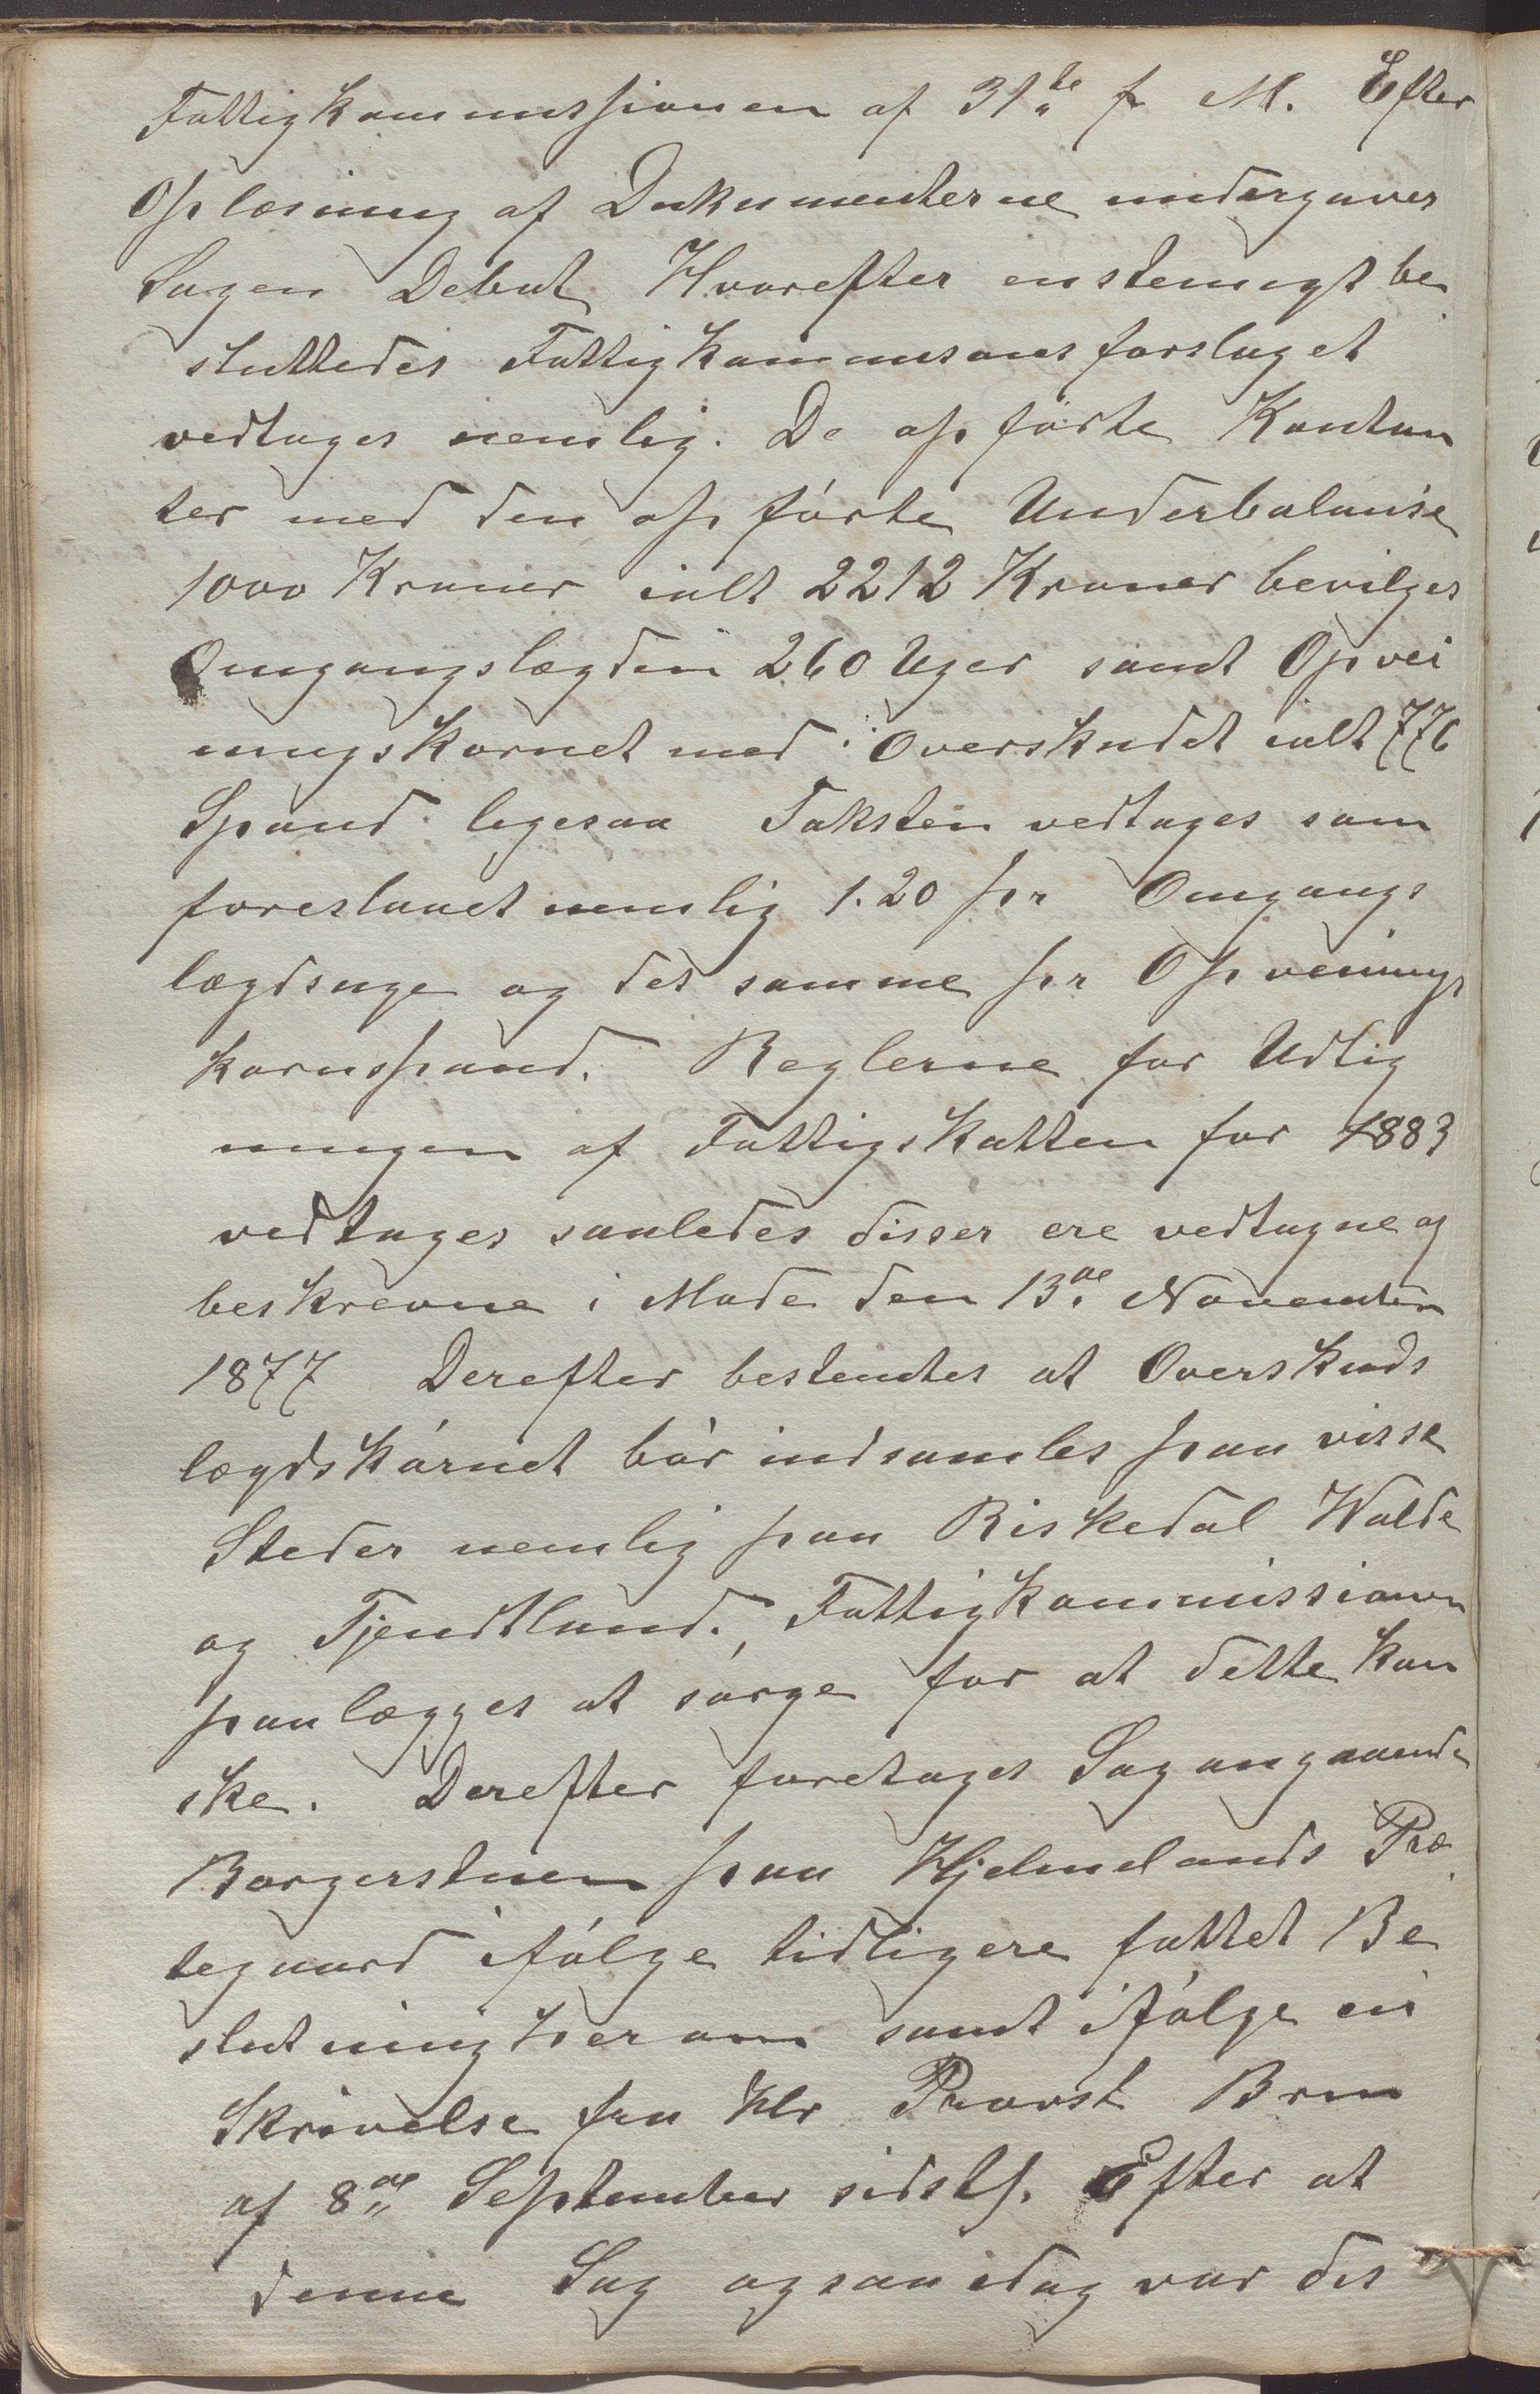 Fattigkommissionen af 31te f M. Efter
Oplæsning af Dokumenterne undergaves
Sagen Debat Hvorefter enstemigt be
sluttedes Fattigkommisonsforslaget
vedtages nemlig. De opförte Kontan
ter med den opförte Underbalanse
1000 Kroner ialt 2212 Kroner bevilges
Omgangslægden 260 Uger samt Opvei
ningskornet med i Overskudet ialt 776
Spand ligesaa Taksten vedtages som
foreslaaet nemlig 1.20 pr Omgangs
lægdsuge og det samme pr Opveinings
kornspand. Reglerne for Udlig
ningen af Fattigskatten for 1883
vedtages saaledes disser ere vedtagne og
beskrevne i Mode den 13de November
1877 Derefter bestemtes at Overskuds
lægdskórnet bór indsamles paa visse
Steder nemlig paa Riskedal Walde
og Tjendtland. Fattigkommissionen
paalægges at sórge for at dette kan
ske. Derefter foretages Sag angaaende
Borgerstuen paa Hjelmelands Præ
tegaard ifólge tidligere fattet Be
slutning herom samt ifólge en
Skrivelse fra Hr Provst Brun
af 8de September sidstl. Efter at
denne Sag ogsaa idag var det